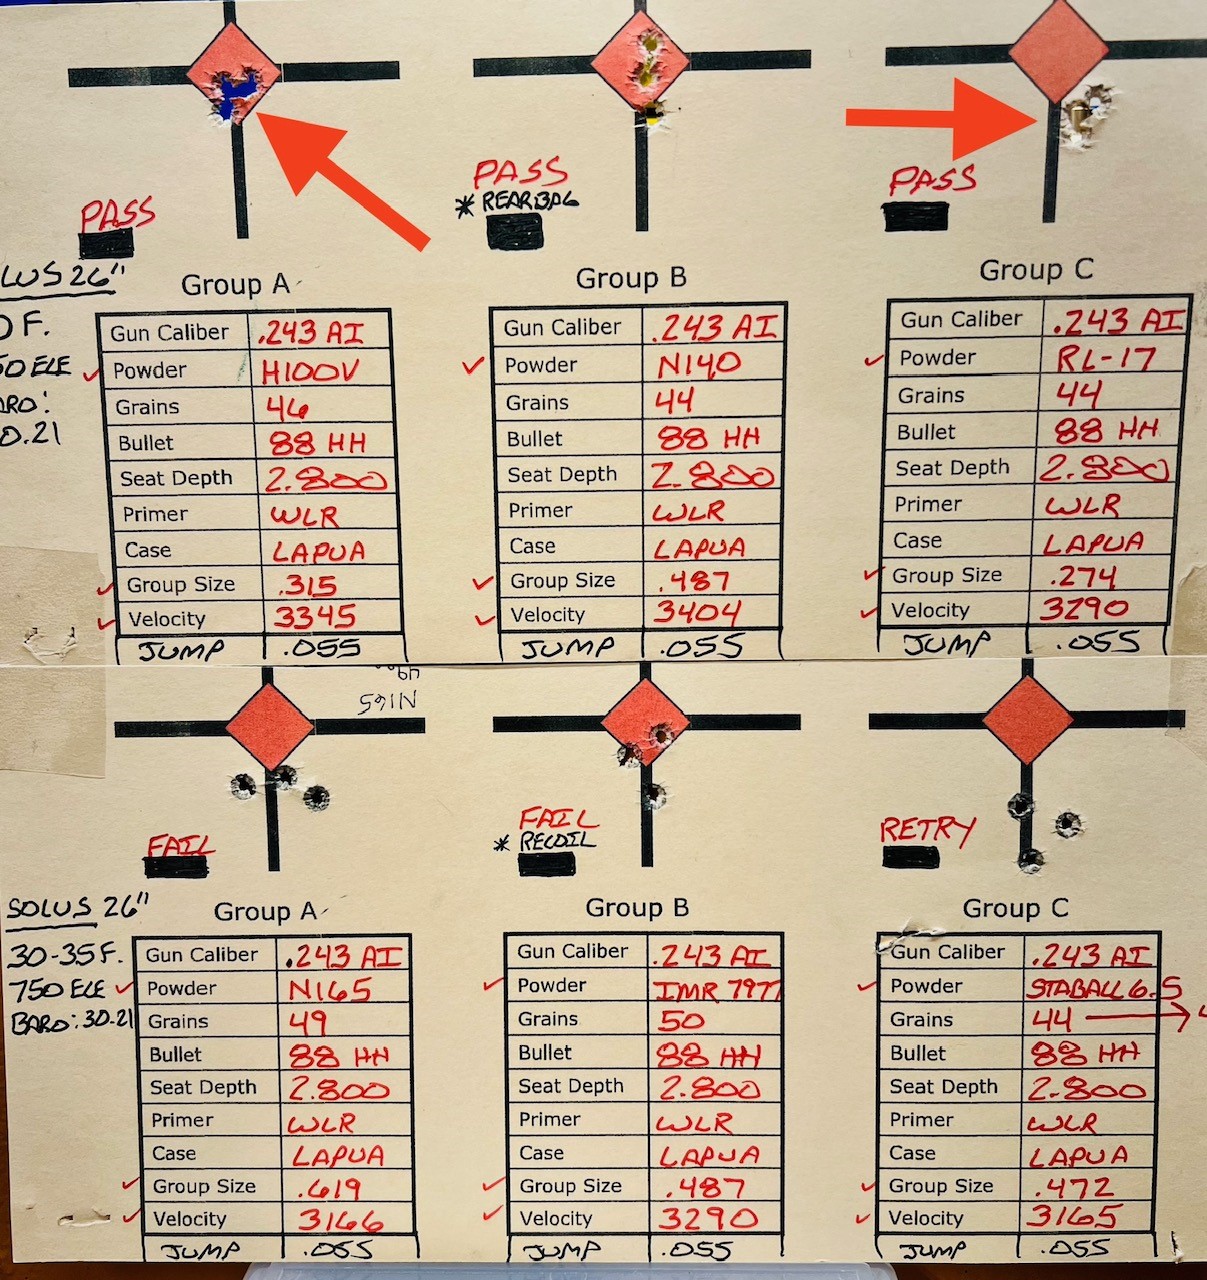 PASS
PASS
* REARBAG
PASS
LUS 26"
F.
50 ELE
ARO:
0.21
Group A
Gun Caliber .243 AI
Powder H100V
Grains 46
Bullet 88 HH
Seat Depth 2.800
Primer WLR
Case LAPUA
Group Size .315
Velocity 3345
JUMP .055
Group B
Gun Caliber .243 AI
Powder N140
Grains 44
Bullet 88 HH
Seat Depth 2.800
Primer WLR
Case LAPUA
Group Size .487
Velocity 3404
JUMP .055
Group C
Gun Caliber .243 AI
Powder RL-17
Grains 44
Bullet 88 HH
Seat Depth 2.800
Primer WLR
Case LAPUA
Group Size .274
Velocity 3290
JUMP .055
N165
FAIL
FAIL
* RECOIL
RETRY
SOLUS 26"
30-35 F.
750 ELE
BARO: 30.21
Group A
Gun Caliber .243 AI
Powder N165
Grains 49
Bullet 88 HH
Seat Depth 2.800
Primer WLR
Case LAPUA
Group Size .619
Velocity 3166
JUMP .055
Group B
Gun Caliber .243 AI
Powder IMR 7977
Grains 50
Bullet 88 HH
Seat Depth 2.800
Primer WLR
Case LAPUA
Group Size .487
Velocity 3290
JUMP .055
Group C
Gun Caliber .243 AI
Powder STABALL 6.5
Grains 44 →
Bullet 88 HH
Seat Depth 2.800
Primer WLR
Case LAPUA
Group Size .472
Velocity 3165
JUMP .055